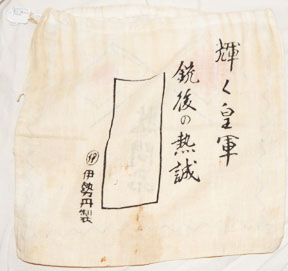 輝く皇軍
銃後の熱誠
伊勢丹製